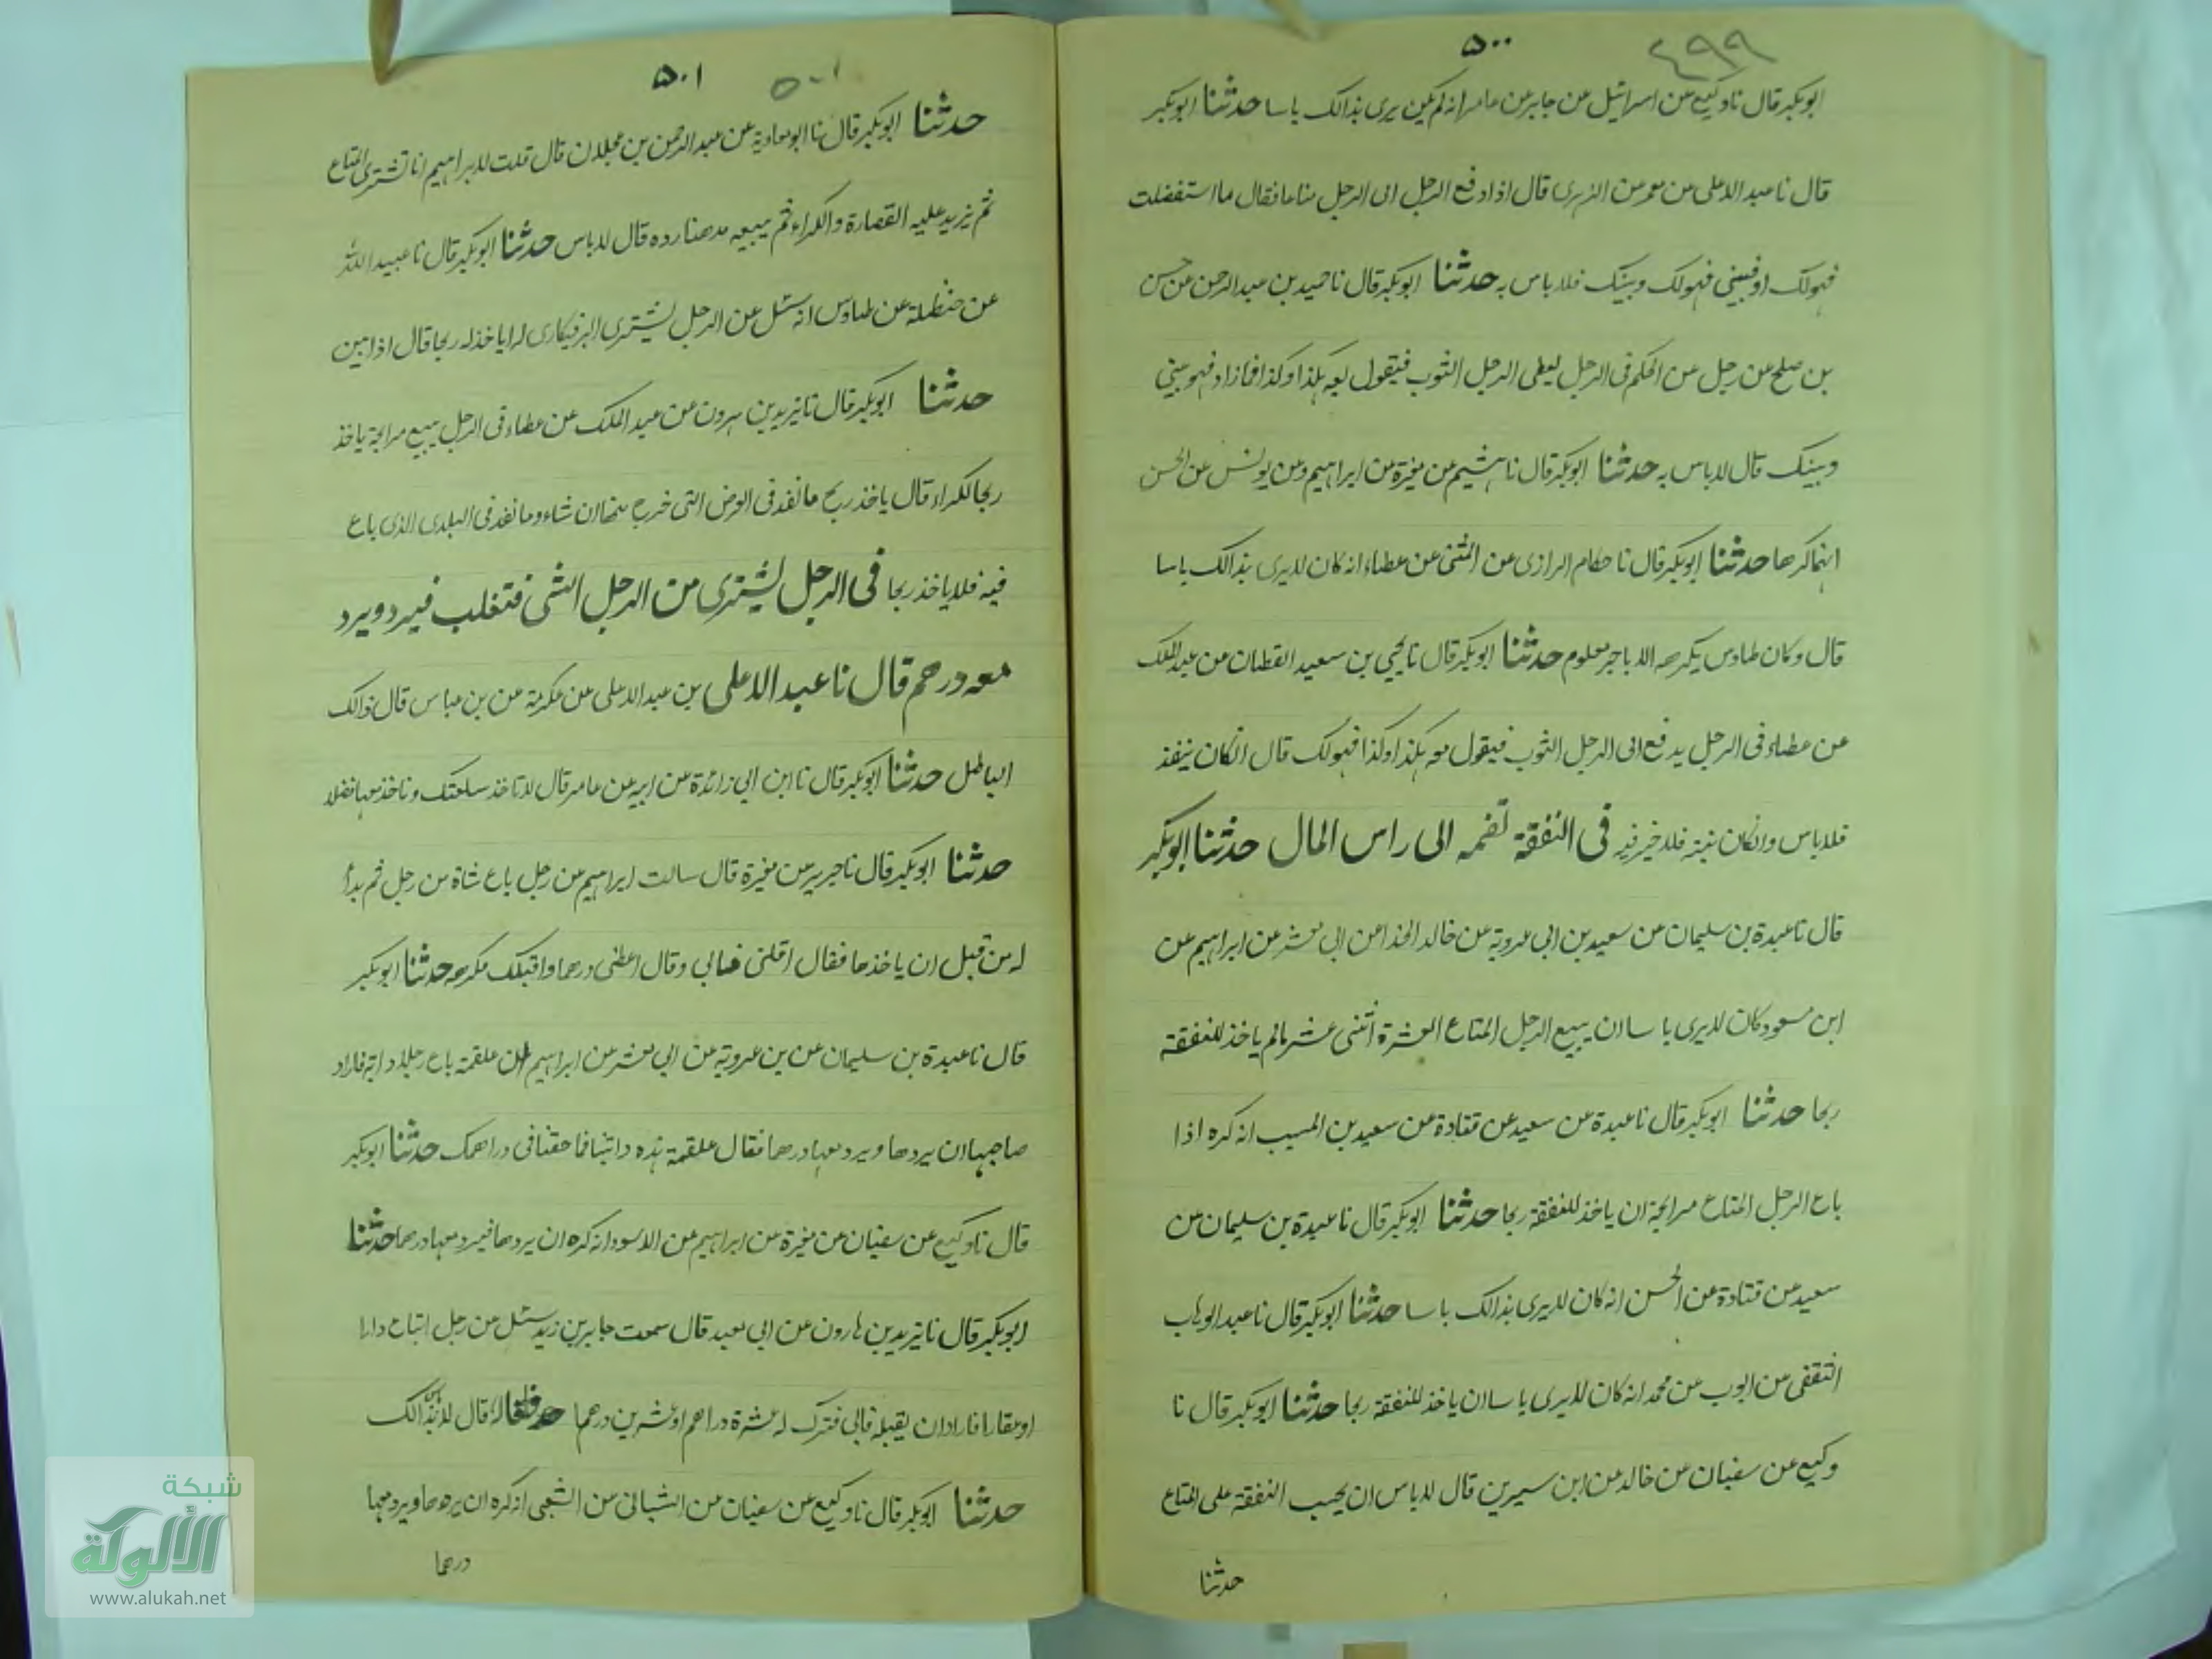 ٤٩٩
٥٠٠
ابوبكر قال نا وكيع عن اسرائيل عن جابر عن عامر انه لم يكن يرى بذالك باسا حدثنا ابوبكر
قال نا عبد الاعلى عن معمر عن الزهرى قال اذا دفع الرجل الى الرجل متاعا فقال ما استفضلت
فهولك او فبينى فهولك وبينك فلا باس به حدثنا ابوبكر قال نا حميد بن عبد الرحمن عن حسن
بن صلح عن رجل عن الحكم فى الرجل يعطى الرجل الثوب فيقول بعه بكذا وكذا فما زاد فهو بينى
وبينك قال لا باس به حدثنا ابوبكر قال نا هشيم عن مغيرة عن ابراهيم وعن يونس عن الحسن
انهما كرها حدثنا ابوبكر قال نا حكام الرازى عن المثنى عن عطاء انه كان لا يرى بذالك باسا
قال وكان طاوس يكرهه الا باجر معلوم حدثنا ابوبكر قال نا يحيى بن سعيد القطان عن عبد الملك
عن عطاء فى الرجل يدفع الى الرجل الثوب فيقول بعه بكذا وكذا فهولك قال انكان ينفذ
فلا باس وانكان فلا خير فيه فى النفقة تضم الى راس المال حدثنا ابوبكر
قال نا عبدة بن سليمان عن سعيد بن ابى عروبة عن خالد الحذا عن ابى معشر عن ابراهيم عن
ابن مسعود كان لا يرى باسا ان يبيع الرجل المتاع العشرة اثنى عشر مالم ياخذ للنفقة
ربحا حدثنا ابوبكر قال نا عبدة عن سعيد عن قتادة عن سعيد بن المسيب انه كره اذا
باع الرجل المتاع مرابحة ان ياخذ للنفقة ربحا حدثنا ابوبكر قال نا عبدة بن سليمان عن
سعيد عن قتادة عن الحسن انه كان لا يرى بذالك باسا حدثنا ابوبكر قال نا عبد الوهاب
الثقفى عن ايوب عن محمد انه كان لا يرى باسا ان ياخذ للنفقة ربحا حدثنا ابوبكر قال نا
وكيع عن سفيان عن خالد عن ابن سيرين قال لا باس ان يحسب النفقة على المتاع
حدثنا
٥٠١
٥٠١
حدثنا ابوبكر قال نا ابو معاوية عن عبد الرحمن بن عجلان قال قلت لابراهيم انا نشترى المتاع
ثم نزيد عليه القصارة والكراء ثم نبيعه قال لا باس حدثنا ابوبكر قال نا عبيد الله
عن حنظلة عن طاوس انه سئل عن الرجل يشترى البز فيكارى له اياخذ له ربحا قال اذا بين
حدثنا ابوبكر قال نا يزيد بن هرون عن عبد الملك عن عطاء فى الرجل يبيع مرابحة ياخذ
ربحا لكراء قال ياخذ ربح ما نفد فى الارض التى خرج منها ان شاء وما نفد فى البلدى الذى باع
فيه فلا ياخذ ربحا فى الرجل يشترى من الرجل الشى فتغلب فيرد ويرد
معه درهم قال نا عبد الاعلى بن عبد الاعلى عن عكرمة عن بن عباس قال ذالك
الباطل حدثنا ابوبكر قال نا ابن ابى زائدة عن ابيه عن عامر قال لا تاخذ سلعتك وتاخذ معها فضلا
حدثنا ابوبكر قال نا جرير عن مغيرة قال سالت ابراهيم عن رجل باع شاة من رجل ثم بدا
له من قبل ان ياخذها فقال اقلنى فابى وقال اعطنى درهما واقيلك فكرهه حدثنا ابوبكر
قال نا عبدة بن سليمان عن بن عروبة عن ابى معشر عن ابراهيم ان علقمة باع رجلا دابة فاراد
صاحبها ان يردها ويرد معها درهما فقال علقمة هذه دابتنا فما حقنا فى دراهمك حدثنا ابوبكر
قال نا وكيع عن سفيان عن مغيرة عن ابراهيم عن الاسود انه كره ان يردها فيرد معها درهما حدثنا
ابوبكر قال نا يزيد بن هارون عن ابى سعيد قال سمعت جابر بن زيد سئل عن رجل ابتاع دارا
او عقارا فاراد ان يقيله فابى فترك له عشرة دراهم او عشرين درهما قال لا باس بذالك
حدثنا ابوبكر قال نا وكيع عن سفيان عن الشيبانى عن الشعبى انه كره ان يردها ويرد معها
درهما
شبكة
الألوكة
www.alukah.net